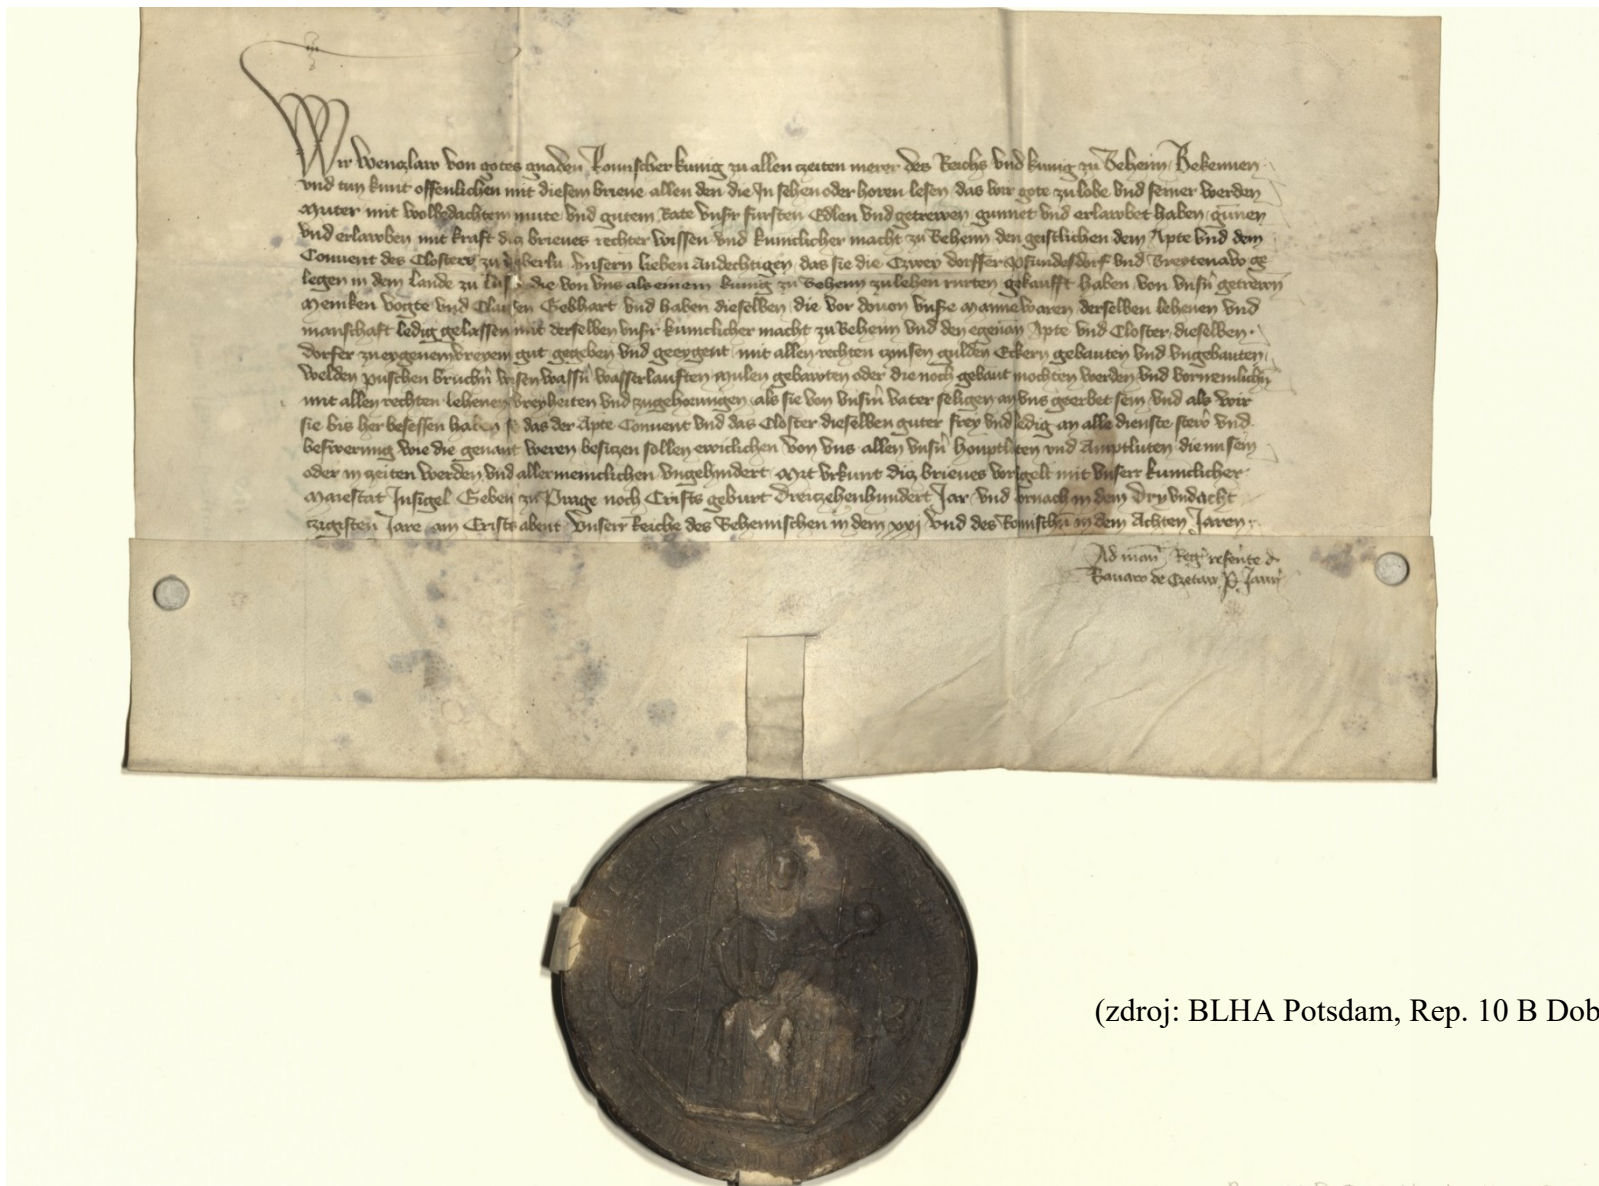 Wir Wenczlaw von gotes gnaden Romischer kunig zu allen czeiten merer des Reichs vnd kunig zu Beheim Bekennen
vnd tun kunt offenlichen mit diesem brieue allen den die In sehen oder horen lesen das wir gote zu lobe vnd seiner werden
Muter mit wolbedachtem mute vnd gutem Rate vnsr fursten Edlen vnd getrewen gunnet vnd erlawbet haben gunen
vnd erlawben mit kraft dicz brieues rechter wissen vnd kuniclicher macht zu Behem den geistlichen dem Apte vnd dem
Conuent des Closters zu berlu vnsern lieben Andechtigen das sie die Czwey dorffer vnd Breytenaw ge
legen in dem Lande zu die von vns als einem kunig zu Behem zu lehen rurten gekaufft haben von vnsn getrewn
Meniken vogte vnd Clausen Gebhart vnd haben dieselben die vor douon vnsre Manne waren derselben lehenen vnd
manschaft ledig gelassen mit derselben vnsr kuniclicher macht zu Behem vnd den egenan Apte vnd Closter dieselben
dorfer zu eygenem vreyem gut gegeben vnd geeygent mit allen rechten czinsen gulden Eckern gebauten vnd vngebauten
welden puschen bruchn wisen wassn wasserlauften Mulen gebawten oder die noch gebaut mochten werden vnd vornemlichn
mit allen rechten lehenen vreyheiten vnd zugehorungen als sie von vnsm vater seligen an vns geerbet sein vnd als wir
sie bis her besessen haben so das der Apte Conuent vnd das Closter dieselben guter frey vnd ledig an alle dienste stewr vnd
beswerung wie die genant weren besiczen sollen ewiclichen von vns allen vnsn houptluten vnd Amptluten die nu sein
oder in zeiten werden vnd allermeniclichen vngehindert Mit vrkunt dicz brieues vorsigelt mit vnserr kuniclicher
Maiestat Insigel Geben zu Prage noch Crists geburt Dreiczehenhundert Jar vnd dornach in dem Dry vnd acht
czigisten Jare am Crists abent vnserr Reiche des Behemischen in dem xxj vnd des Romischn in dem Achten Jaren
Ad man Reg refente d
Bauaro de P. Jaur
(zdroj: BLHA Potsdam, Rep. 10 B Dob